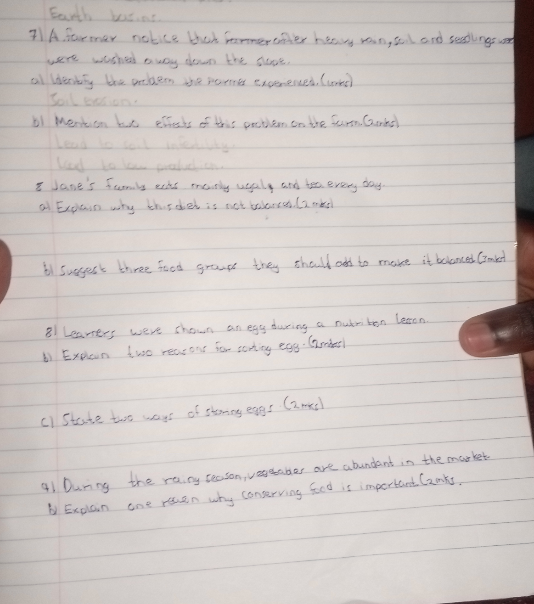 Earth basins.
7) A farmer notice that farmer after heavy rain, soil and seedlings were
were washed away down the slope.
a) Identify the problem the farmer experienced. (1mks)
Soil erosion.
b) Mention two effects of this problem on the farm. (2mks)
Lead to soil infertility.
Lead to low production.
8 Jane's family eats mainly ugali and tea every day
a) Explain why this diet is not balanced. (2mks)
b) Suggest three food groups they should add to make it balanced (3mks)
8) Learners were shown an egg during a nutrition lesson
b) Explain two reasons for sorting egg. (2mks)
c) State two ways of storing eggs (2mks)
9) During the rainy season, vegetables are abundant in the market
b) Explain one reason why conserving food is important. (2mks.